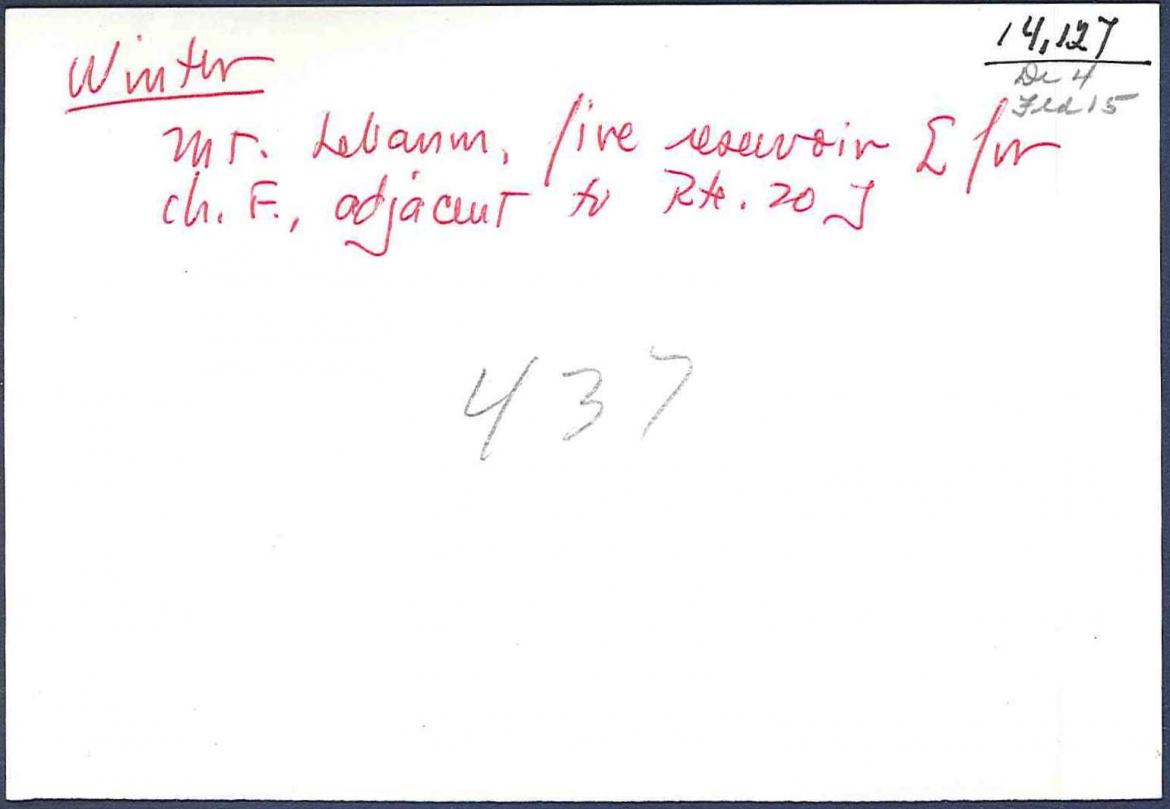 14,127
De 4
Fed 15
Winter
Mt. Lebanon, fire reservoir [ for
Ch. F., adjacent to Rte. 20 ]
437